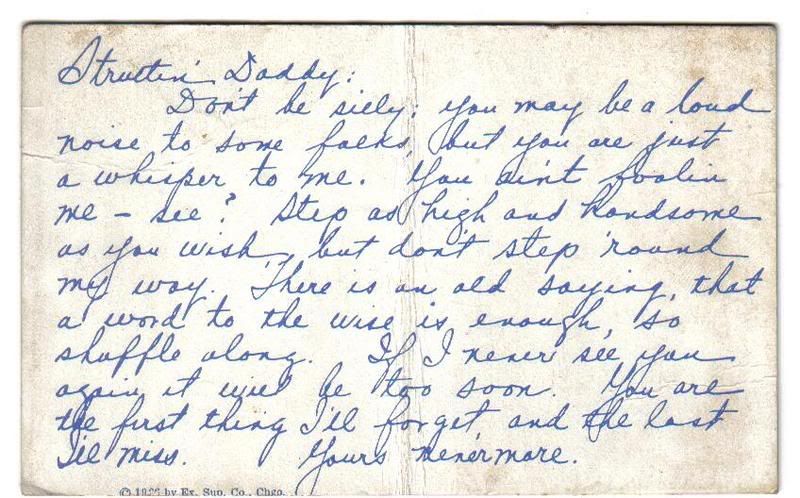 Struttin' Daddy:
Don't be silly; you may be a loud
noise to some folks, but you are just
a whisper to me. You ain't foolin
me - see? Step as high and handsome
as you wish, but don't step 'round
my way. There is an old saying, that
a word to the wise is enough, so
shuffle along. If I never see you
again it will be too soon. You are
the first thing I'll forget and the last
I'll miss. Yours nevermore.
by Ex. Sup. Co., Chgo.